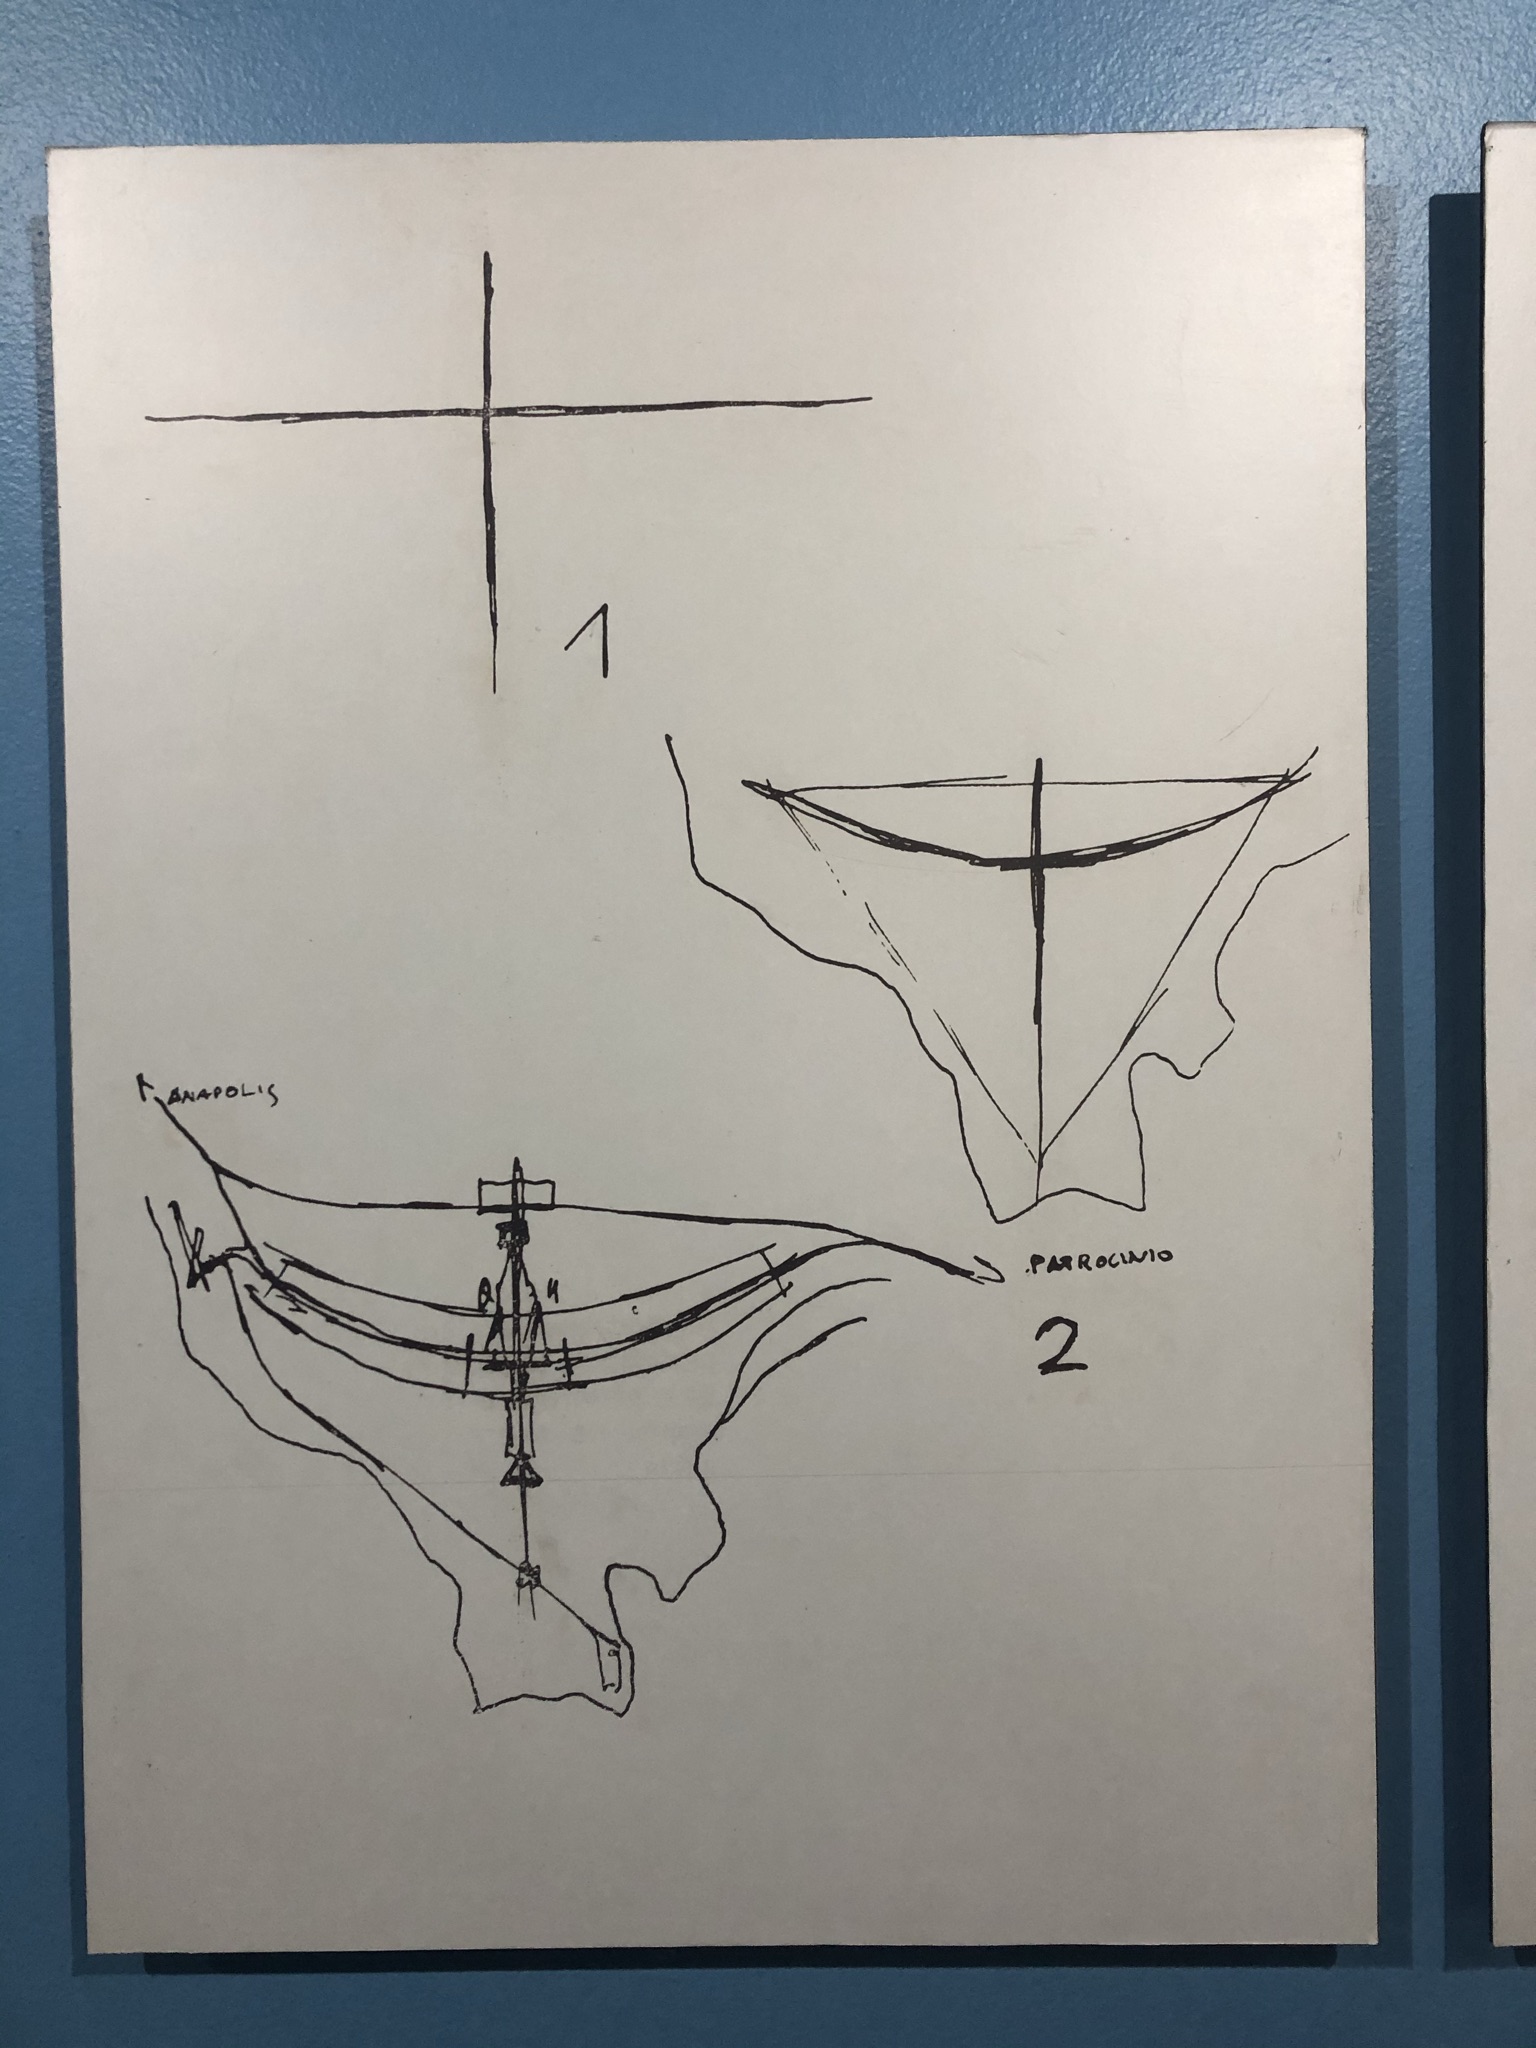 1
ANAPOLIS
PATROCINIO
2